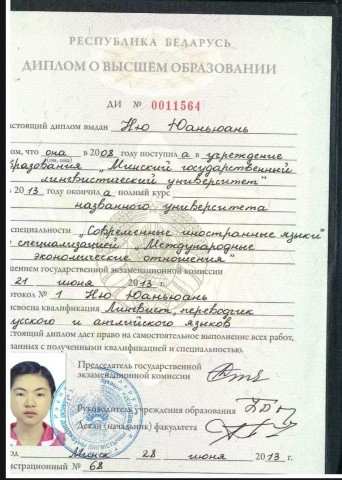 РЕСПУБЛИКА БЕЛАРУСЬ
ДИПЛОМ О ВЫСШЕМ ОБРАЗОВАНИИ
ДИ № 0011564
астоящий диплом выдан Ню Юаньюань
ом, что она в 2008 году поступила в учреждение
(он, она)
бразования „Минский государственный
лингвистический университет"
в 2013 году окончила полный курс
названного университета
специальности „Современные иностранные языки"
специализацией „Международные
экономические отношения"
шением государственной экзаменационной комиссии
21 июня 2013 г.
отокол № 1 Ню Юаньюань
исвоена квалификация Лингвист, переводчик
русского и английского языков
стоящий диплом даёт право на самостоятельное выполнение всех работ,
занных с полученными квалификацией и специальностью.
Председатель государственной
экзаменационной комиссии
Руководитель учреждения образования
Декан (начальник) факультета
род Минск 28 июня 2013 г.
истрационный № 68